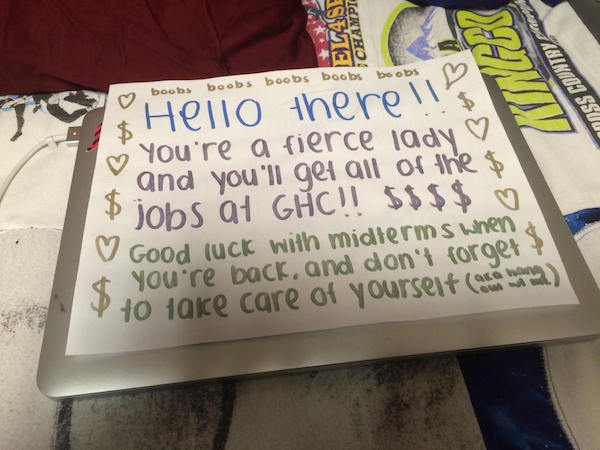 boobs boobs boobs boobs boobs
Hello there!!
You're a fierce lady
and you'll get all of the
jobs at GHC!! $$$$
Good luck with midterms when
you're back, and don't forget
to take care of yourself (aka hang
out wt me)
KINGCO
CROSS COUNTRY